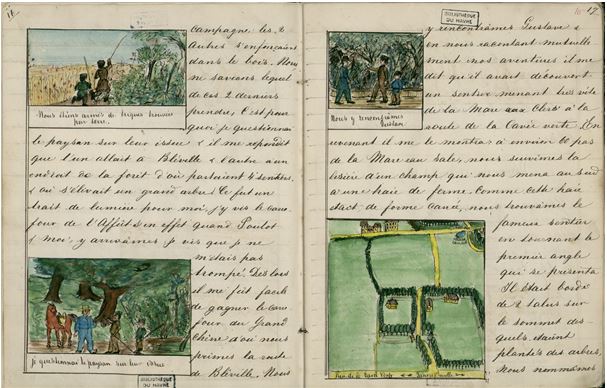 16
campagne les 2
autres s'enfonçaient
dans le bois. Nous
ne savions lequel
de ces 2 derniers
prendre, C'est pour
quoi je questionnai
le paysan sur leur issue & il me répondit
que l'un allait à Bléville & l'autre à un
endroit de la forêt d'où partaient 4 sentiers
& où s'élevait un grand arbre. Ce fut un
trait de lumière pour moi, j'y vis le carre
four de l'Affût & en effet quand Poulot
& moi, y arrivâmes je vis que je ne
m'étais pas
trompé. Dès lors
il me fut facile
de gagner le carre
four du Grand
Chêne d'où nous
prîmes la route
de Bléville. Nous
Nous étions armés de triques trouvées
par terre.
je questionnai le paysan sur leur issue
BIBLIOTHÈQUE
DU HAVRE
BIBLIOTHÈQUE
DU HAVRE
17
y rencontrâmes Gustave &
en nous racontant mutuelle
ment nos aventures il me
dit qu'il avait découvert
un sentier menant très vite
de la Mare aux Clercs à la
route de la Cavée verte. En
revenant il me le montra à environ 60 pas
de la Mare au sale, nous suivîmes la
lisière d'un champ qui nous mena au sud
à une haie de ferme. Comme cette haie
était de forme carrée, nous trouvâmes le
fameux sentier
en tournant le
premier angle
qui se présenta
Il était bordé
de 2 talus sur
le sommet des
quels étaient
plantés des arbres.
Nous nommâmes
Nous y rencontrâmes
Gustave.